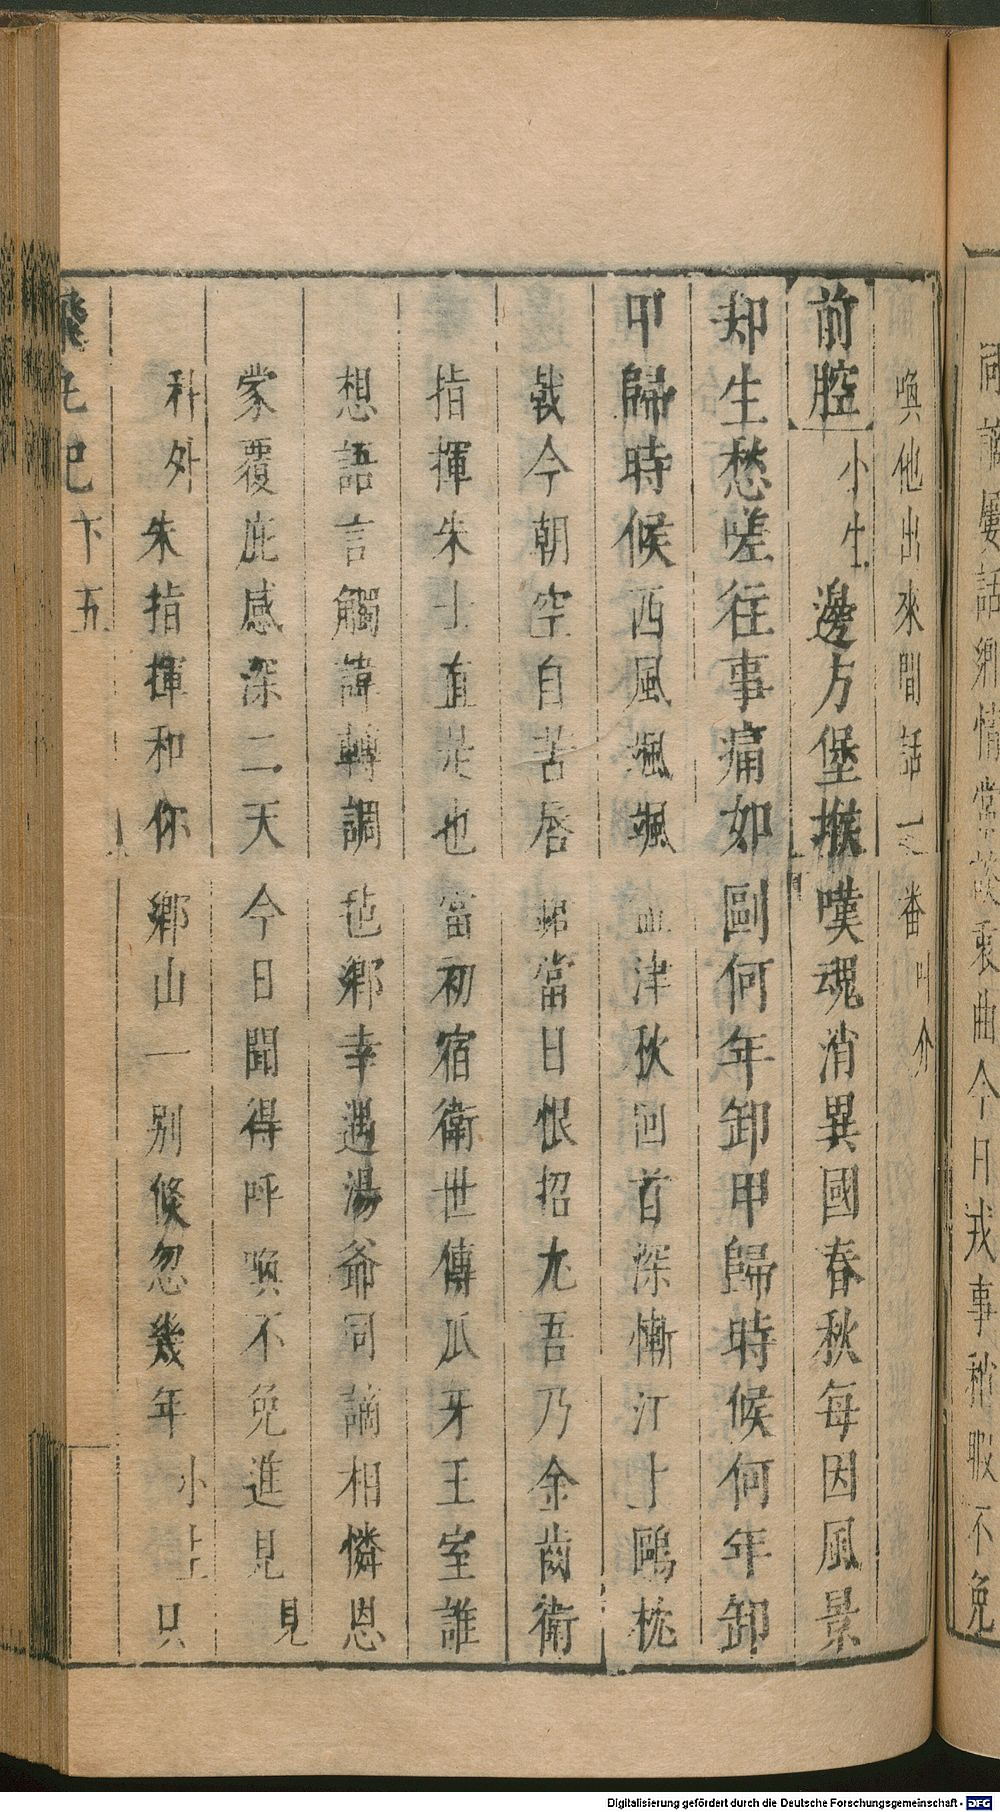 同謫屢話鄉情當敘衷曲今日戎事稍暇不免
喚他出來間話一番叶介
前腔小生邊方堡堠嘆魂消異國春秋每因風景
却生愁嗟往事痛如剾何年卸甲歸時候何年卸
甲歸時候西風颯颯血津秋回首深慚汀上鷗枕
戟今朝空自苦唇 當日恨招尤吾乃金齒衛
指揮朱士直是也當初宿衛世傳瓜牙王室誰
想語言觸諱轉調他鄉幸遇湯爺同謫相憐恩
蒙覆庇感深二天今日聞得呼喚不免進見見
科外朱指揮和你鄉山一別倏忽幾年小生只
飛丸記 卞 五
Digitalisierung gefördert durch die Deutsche Forschungsgemeinschaft - DFG